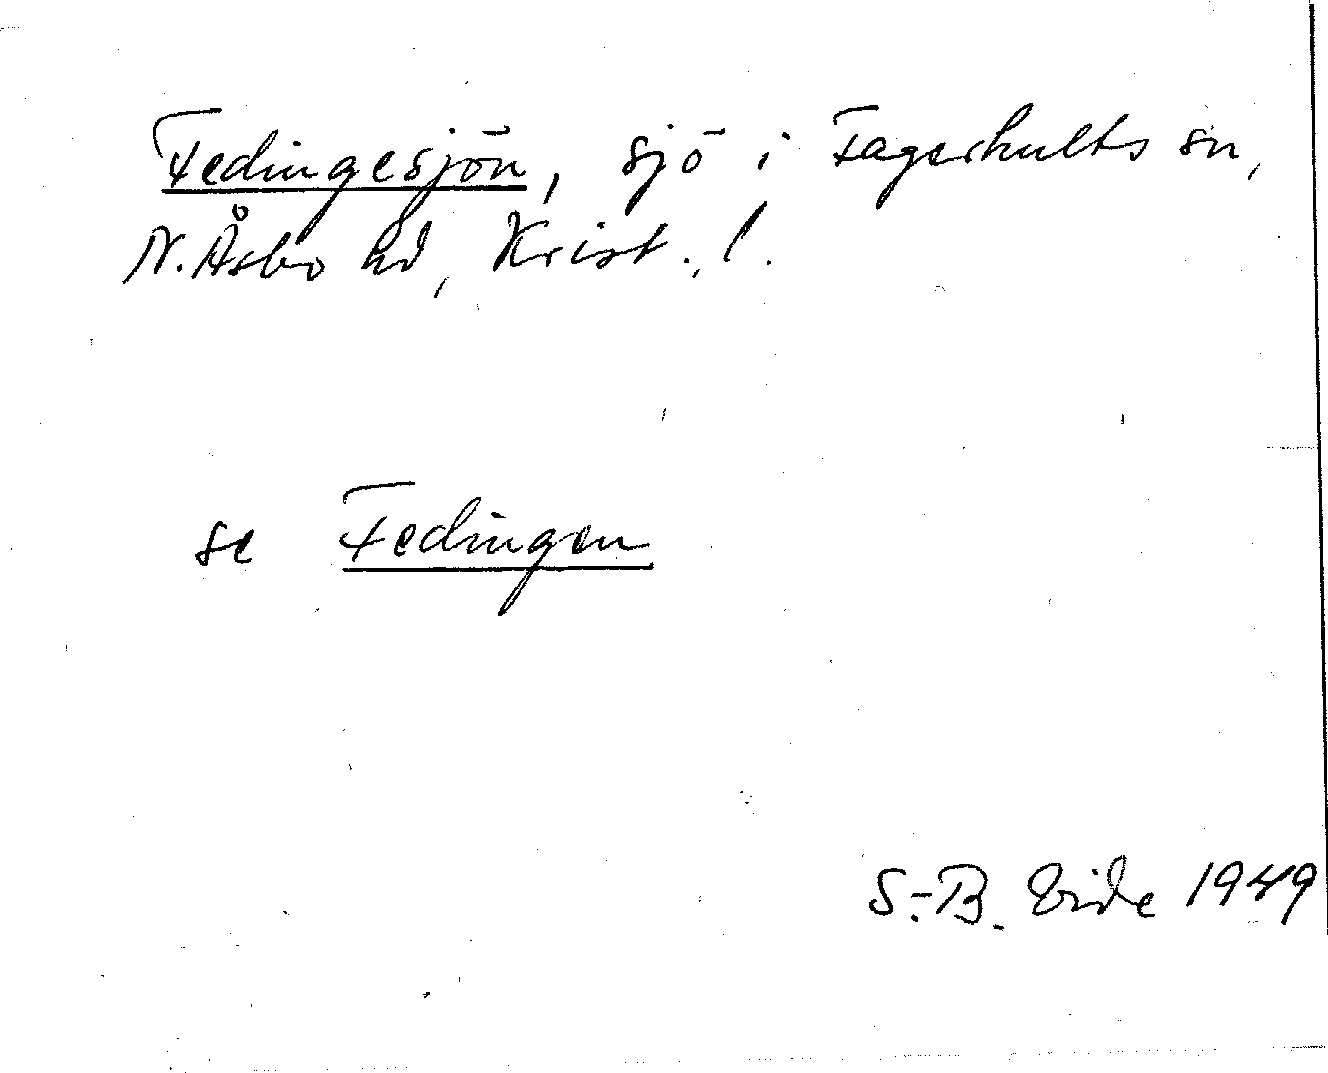 Fedingesjön, sjö i Fagerhults sn,
N. Åsbo hd, Krist. l.
se Fedingen
S.-B. Vide 1949